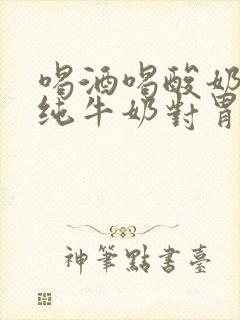 喝酒喝酸奶
纯牛奶對胃
神筆點書臺